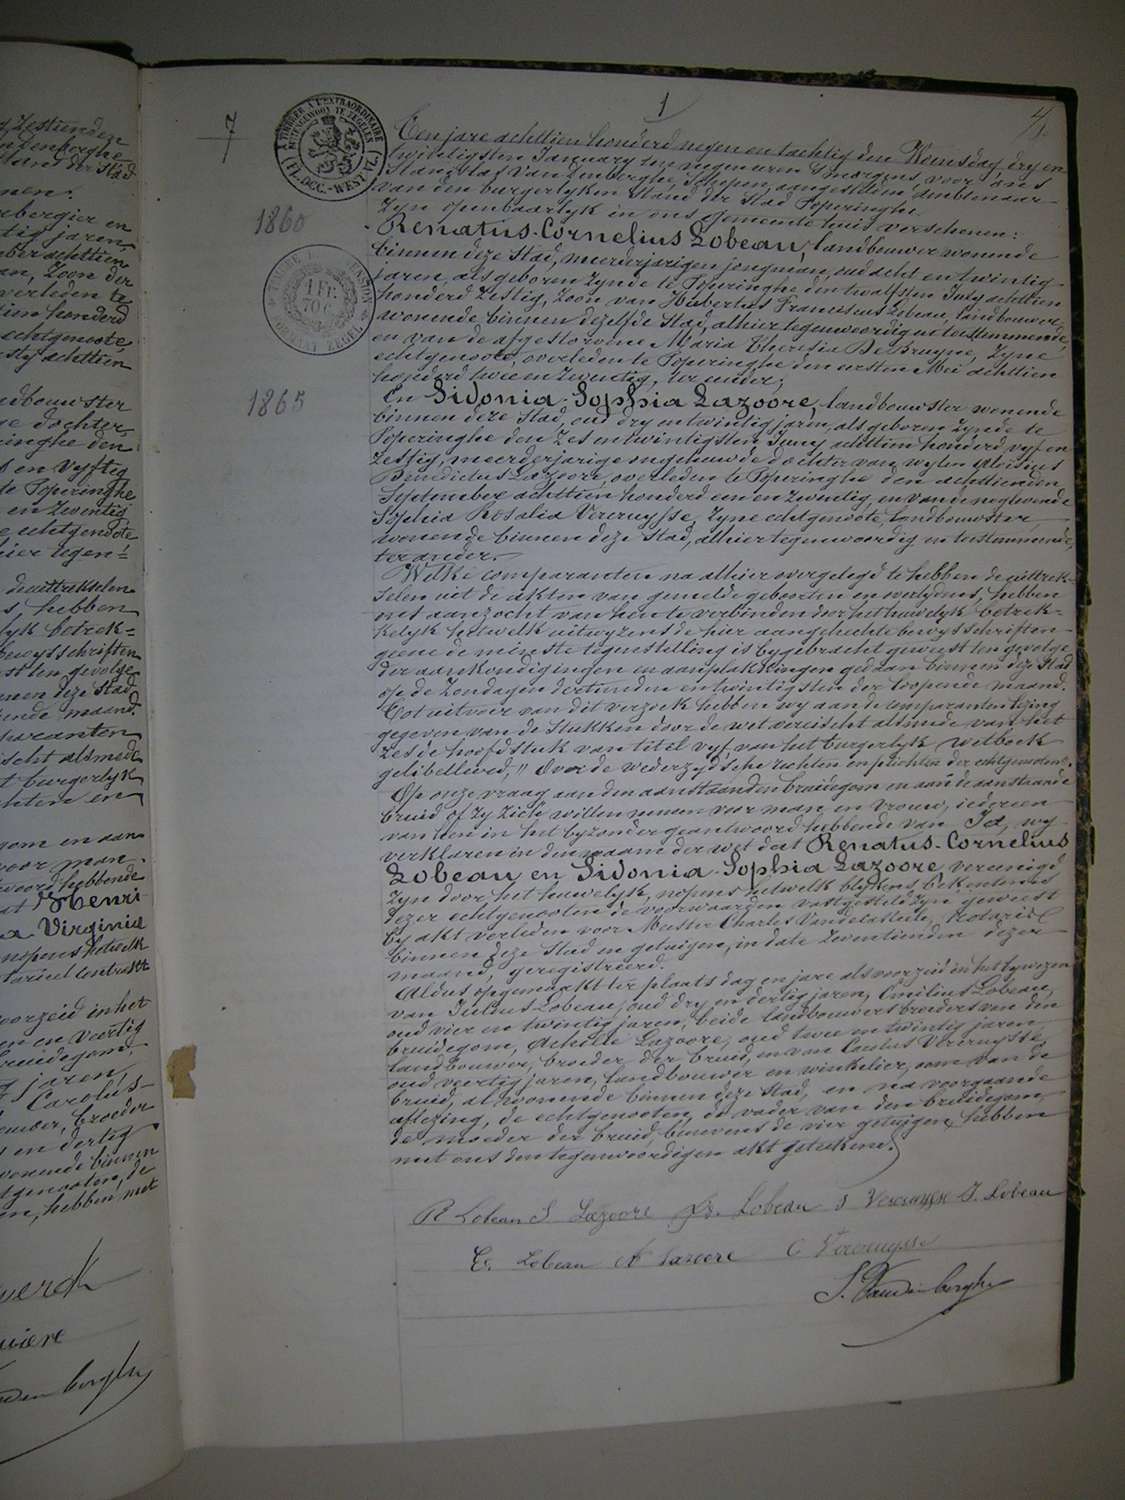 7
1
4/
TIMBRE A L'EXTRAORDINAIRE
BUITENGEWOON TE ZEGELEN
(FL. OCC.-WEST. VL.)
1860
1865
Ten jare achttien honderd negen en tachtig den Woensdag, dry en
twintigsten January ten negen uren 's margens, voor ons
Stanislas Vandenberghe, Schepen, aangestelden ambtenaar
van den burgerlyken stand der Stad Poperinghe
zyn openbaarlyk in ons gemeente huis verschenen:
Renatus-Cornelius Lobeau, landbouwer wonende
binnen deze Stad, meerderjarigen jongman, oud acht en twintig
jaren, als geboren zynde te Poperinghe den twaalfsten July achttien
honderd zestig, zoon van Hubertus Franciscus Lobeau, landbouwer
wonende binnen dezelfde Stad, alhier tegenwoordig en toestemmende,
en van de afgestorvene Maria Theresia DeBruyne, zyne
echtgenoote, overleden te Poperinghe den ersten Mei achttien
honderd twee en zeventig, ter eener;
En Sidonia-Sophia Lazoore, landbouwster wonende
binnen deze Stad, oud dry en twintig jaren, als geboren zynde te
Poperinghe den zes en twintigsten Juny achttien honderd vyf en
zestig, meerderjarige ongehuwde dochter van wylen Aloisius
Benedictus Lazoore, overleden te Poperinghe den achttienden
September achttien honderd een en zeventig, en van de nog levende
Sophia Rosalia Vercruysse, zyne echtgenoote, landbouwster,
wonende binnen deze Stad, alhier tegenwoordig en toestemmende,
ter ander.
Welke comparanten na alhier overgelegd te hebben de uittrek-
selen uit de akten van gemelde geboorten en overlydens, hebben
ons aanzocht van hen te verbinden door het huwelyk betrek-
kelyk hetwelk uitwyzens de hier aangehechte bewysschriften
geene de minste tegenstelling is bygebracht geweest ten gevolge
der aankondigingen en aanplakkingen gedaan binnen deze Stad
op de Zondagen dertienden en twintigsten der loopende maand.
Tot uitvoer van dit verzoek hebben wy aan de comparanten lezing
gegeven van de Stukken door de wet vereischt alsmede van het
zesde hoofdstuk van titel vyf van het burgerlyk wetboek
gelibelleerd, "Over de wederzydsche rechten en plichten der echtgenooten".
Op onze vraag aan den aanstaanden bruidegom en aan de aanstaande
bruid of zy zich willen nemen voor man en vrouw, iedereen
van hen in het byzonder geantwoord hebbende van Ja, wy
verklaren in den naam der wet dat Renatus-Cornelius
Lobeau en Sidonia-Sophia Lazoore, vereenigd
zyn door het huwelyk, nopens hetwelk blykens bekentenis
dezer echtgenooten de voorwaarden vastgesteld zyn geweest
by akt verleden voor Meester Charles Vandelanoite, Notaris
binnen deze Stad en getuigen, in date zeventienden dezer
maand, geregistreerd.
Aldus opgemaakt ter plaats dag en jare als voorzeid in het bywezen
van Julius Lobeau, oud dry en dertig jaren, Emilius Lobeau,
oud vier en twintig jaren, beide landbouwers broeders van den
bruidegom, Achiele Lazoore, oud twee en twintig jaren
landbouwer, broeder der bruid, en van Carolus Vercruysse,
oud veertig jaren, landbouwer en winkelier, oom van de
bruid, al wonende binnen deze Stad, en na voorgaande
aflezing, de echtgenooten, de vader van den bruidegom,
de moeder der bruid, benevens de vier getuigen, hebben
met ons den tegenwoordigen akt geteekend.
R Lobeau S Lazoore Lobeau S Vercruysse J. Lobeau
E. Lobeau A Lazoore C Vercruysse
S. Vandenberghe